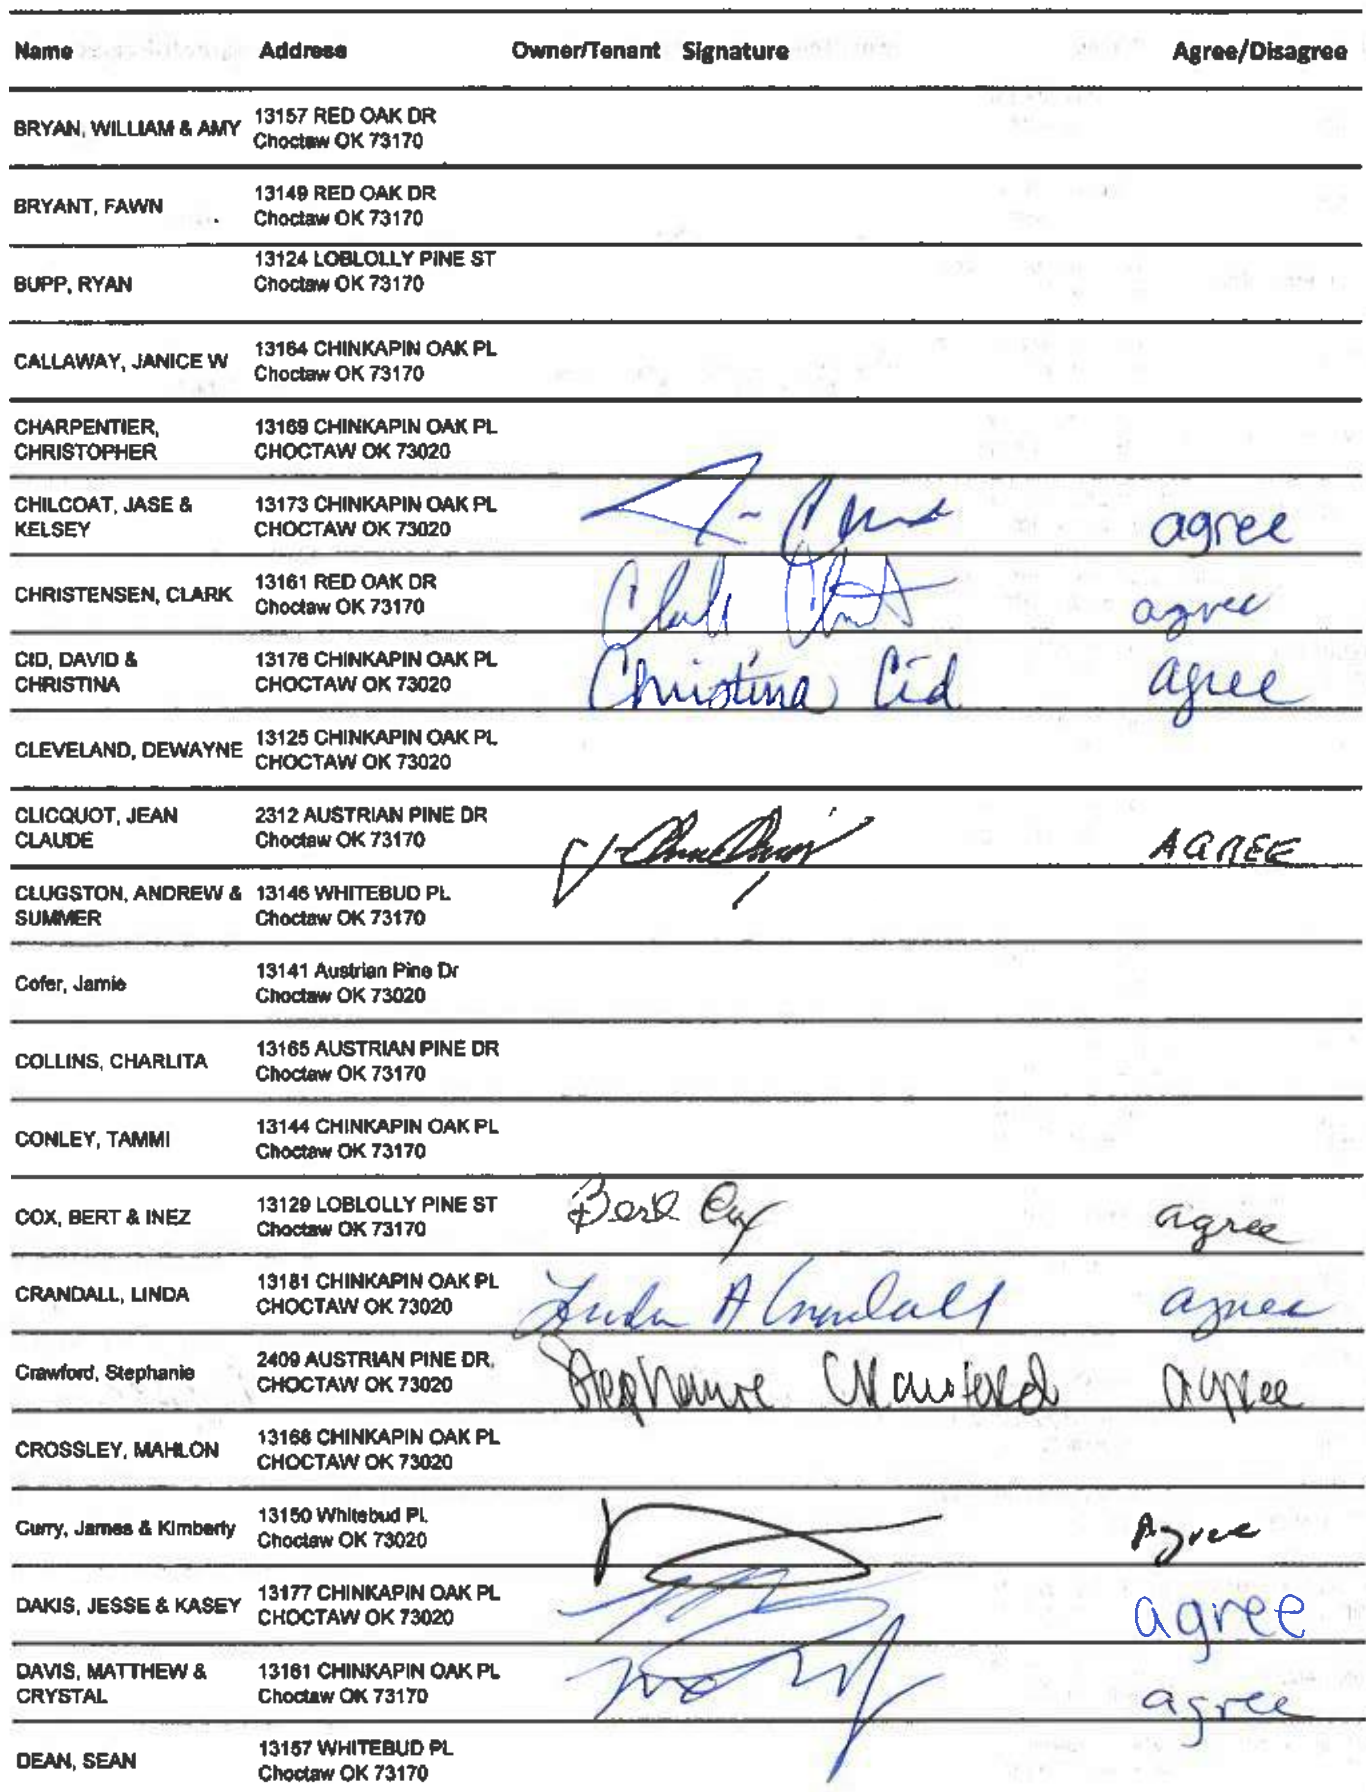 Name Address Owner/Tenant Signature Agree/Disagree
BRYAN, WILLIAM & AMY 13157 RED OAK DR
Choctaw OK 73170
BRYANT, FAWN 13149 RED OAK DR
Choctaw OK 73170
BUPP, RYAN 13124 LOBLOLLY PINE ST
Choctaw OK 73170
CALLAWAY, JANICE W 13164 CHINKAPIN OAK PL
Choctaw OK 73170
CHARPENTIER, 13169 CHINKAPIN OAK PL
CHRISTOPHER CHOCTAW OK 73020
CHILCOAT, JASE & 13173 CHINKAPIN OAK PL
KELSEY CHOCTAW OK 73020 agree
CHRISTENSEN, CLARK 13161 RED OAK DR
Choctaw OK 73170 Clark agree
CID, DAVID & 13176 CHINKAPIN OAK PL
CHRISTINA CHOCTAW OK 73020 Christina Cid agree
CLEVELAND, DEWAYNE 13125 CHINKAPIN OAK PL
CHOCTAW OK 73020
CLICQUOT, JEAN 2312 AUSTRIAN PINE DR
CLAUDE Choctaw OK 73170 AGREE
CLUGSTON, ANDREW & 13146 WHITEBUD PL
SUMMER Choctaw OK 73170
Cofer, Jamie 13141 Austrian Pine Dr
Choctaw OK 73020
COLLINS, CHARLITA 13165 AUSTRIAN PINE DR
Choctaw OK 73170
CONLEY, TAMMI 13144 CHINKAPIN OAK PL
Choctaw OK 73170
COX, BERT & INEZ 13129 LOBLOLLY PINE ST
Choctaw OK 73170 Bert Cox agree
CRANDALL, LINDA 13181 CHINKAPIN OAK PL
CHOCTAW OK 73020 Linda A Crandall agree
Crawford, Stephanie 2409 AUSTRIAN PINE DR,
CHOCTAW OK 73020 Stephanie Crawford agree
CROSSLEY, MAHLON 13168 CHINKAPIN OAK PL
CHOCTAW OK 73020
Curry, James & Kimberly 13150 Whitebud Pl.
Choctaw OK 73020 Agree
DAKIS, JESSE & KASEY 13177 CHINKAPIN OAK PL
CHOCTAW OK 73020 agree
DAVIS, MATTHEW & 13161 CHINKAPIN OAK PL
CRYSTAL Choctaw OK 73170 agree
DEAN, SEAN 13157 WHITEBUD PL
Choctaw OK 73170